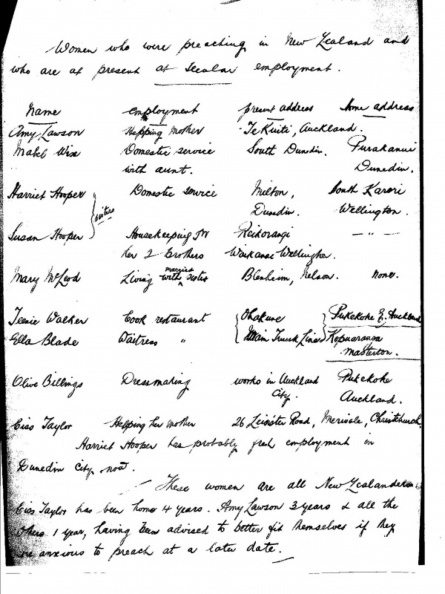 Women who were preaching in New Zealand and
who are at present at Secular employment.
Name employment present address home address
Amy Lawson Helping Mother Te Kuiti, Auckland.
Mabel Wix Domestic service South Dundin. Purakanui
with aunt. Dunedin.
Harriet Hooper Domestic service Milton, South Karori
sisters Dundin. Wellington.
Susan Hooper Housekeeping for Reikorangi
her 2 brothers Waikanae Wellington.
Mary McLeod Living with married sister Blenheim, Nelson. none.
Jeenie Walker Cook restaurant Ohakune Pukekohe E. Auckland
Ella Blade Waitress " Main Trunk Line Kopuaranga
Masterton.
Olive Billings Dressmaking works in Auckland Pukekohe
City. Auckland.
Ciss Taylor Helping her mother 26 Leinster Road, Merivale, Christchurch
Harriet Hooper has probably got employment in
Dunedin City, now.
These women are all New Zealanders.
Ciss Taylor has been home 4 years. Amy Lawson 3 years & all the
others 1 year, having been advised to better fit themselves if they
are anxious to preach at a later date.